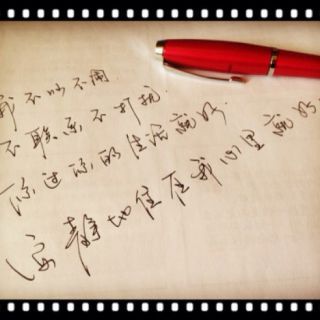 我不吵不闹
不联系不打扰
你过你的生活就好
安静地住在我心里就好